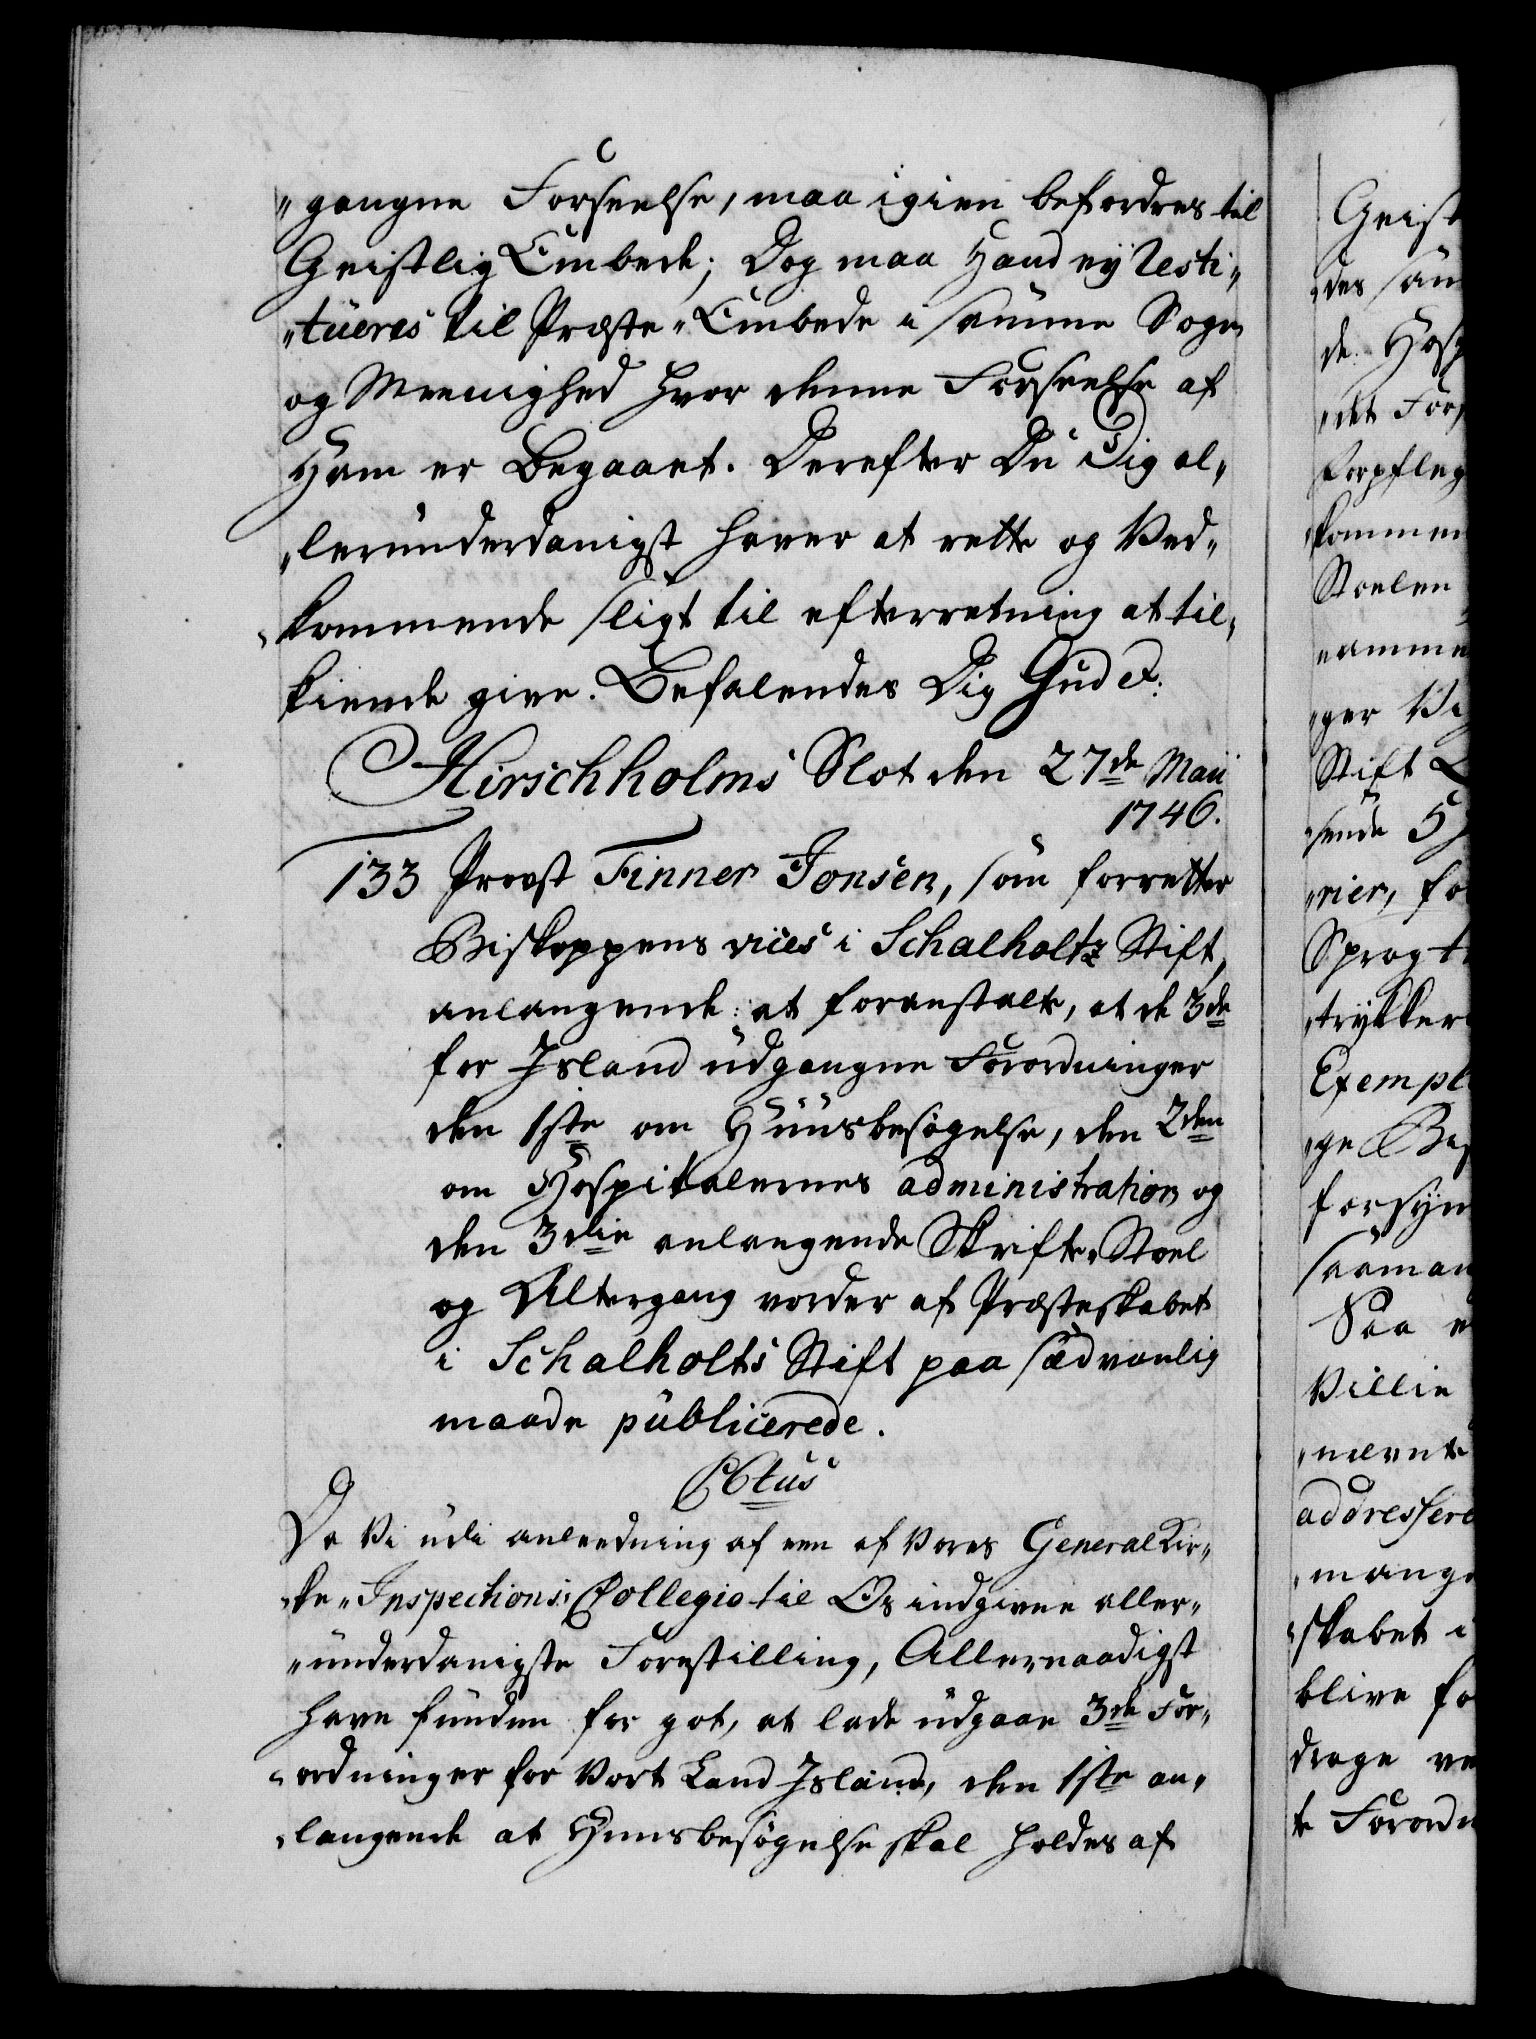 "gangne Forseelse, maa igien befordres til
Geistlig Embede; Dog maa Hand ey Resti„
„tueres til Præste„Embede i samme Sogn
og Meenighed hvor denne Forseelse af
Ham er Begaaet. Derefter Du Dig al„
„lerunderdanigst haver at rette og Ved„
„kommende sligt til efterretning at til„
kiende give. Befalendes Dig Gud &:
Hirschholms Slot den 27de Maii
1746.
133 Provst Finner Jonsen, som forretter
Biskoppens vices i Schalholtz Stift,
anlangende: at foranstalte, at de 3de
for Island udgangne Forordninger
den 1ste om Huusbesøgelse, den 2den
om Hospitalernes administration og
den 3die anlangende Skrifte„Stoel
og Altergang vorder af Præsteskabet
i Schalholts Stift paa sædvanlig
maade publicerede.
C6tus
Da Vi udi anleedning af een af Vores General Kir„
„ke„Inspections: Collegio til Os indgiven aller„
„underdanigste Forestilling, Allernaadigst
have funden for got, at lade udgaae 3de For„
„ordninger for Vort Land Island, den 1ste an„
„langende at Huusbesøgelse skal holdes af
Geist
des sam
de Hosp
„det For
forpfleg
„kommen
Stoelen
„ger Vi
Stift
„sende
„rier, fo
Sprog t
„trykker
Exempl
„ge Be
forsyn
saaman
Saa e
Villie
„nævnte
addressere
„mange
„skabet i
blive fo
drage ve
te Forordn